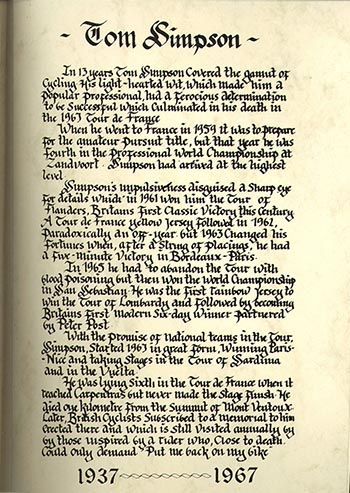 - Tom Simpson -
In 13 years Tom Simpson Covered the gamut of
Cycling His light-hearted wit, which made him a
Popular Professional, hid a ferocious determination
to be Successful which Culminated in his death in
the 1967 Tour de France
When he went to France in 1959 it was to prepare
for the amateur Pursuit title, but that year he was
Fourth in the Professional World Championship at
Zandvoort. Simpson had arrived at the highest
level
Simpson's impulsiveness disguised a Sharp eye
for details which in 1961 won him the Tour of
Flanders, Britains First Classic Victory this century
A Tour de France yellow Jersey followed in 1962,
Paradoxically an off-year but 1963 Changed his
Fortunes when, after a String of Placings, he had
a five-minute Victory in Bordeaux-Paris.
In 1965 he had to abandon the Tour with
blood Poisoning but then won the World Championship
in San Sebastian. He was the first rainbow Jersey to
win the Tour of Lombardy and followed by becoming
Britains First Modern Six-day Winner Partnered
by Peter Post
With the Promise of national teams in the Tour,
Simpson, Started 1967 in great form, Winning Paris-
Nice and taking Stages in the Tour of Sardinia
and in the Vuelta
He was lying Sixth in the Tour de France when it
reached Carpentras but never made the Stage finish. He
died one kilometre From the Summit of Mont Ventoux.
Later, British Cyclists Subscribed to a memorial to him
erected there and which is still Visited annually by
by those inspired by a rider who, Close to death,
Could only demand "Put me back on my bike"
1937 1967